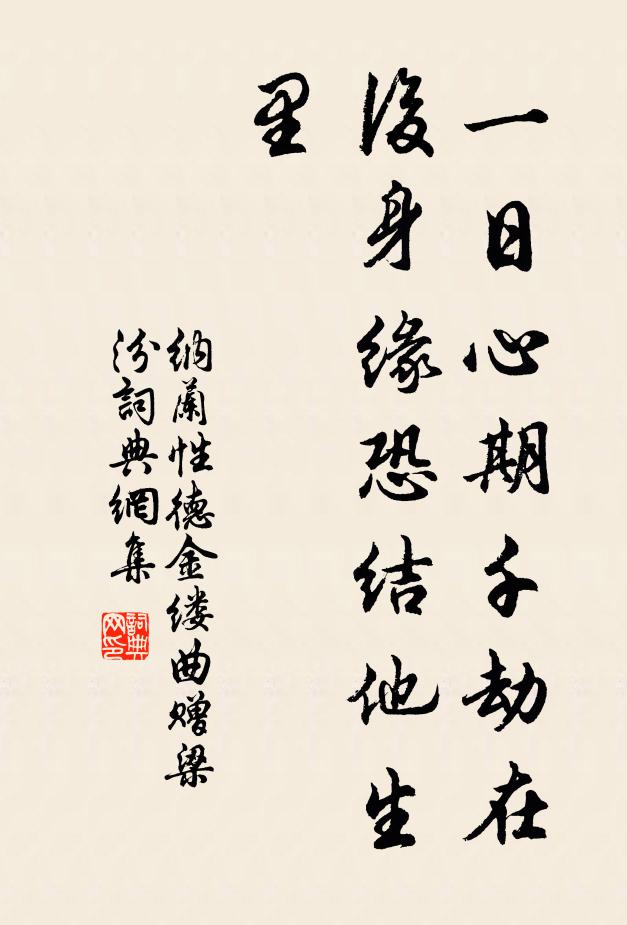 一日心期千劫在
後身緣恐結他生
里
納蘭性德金缕曲赠梁
汾詞典網集
詞典
网印